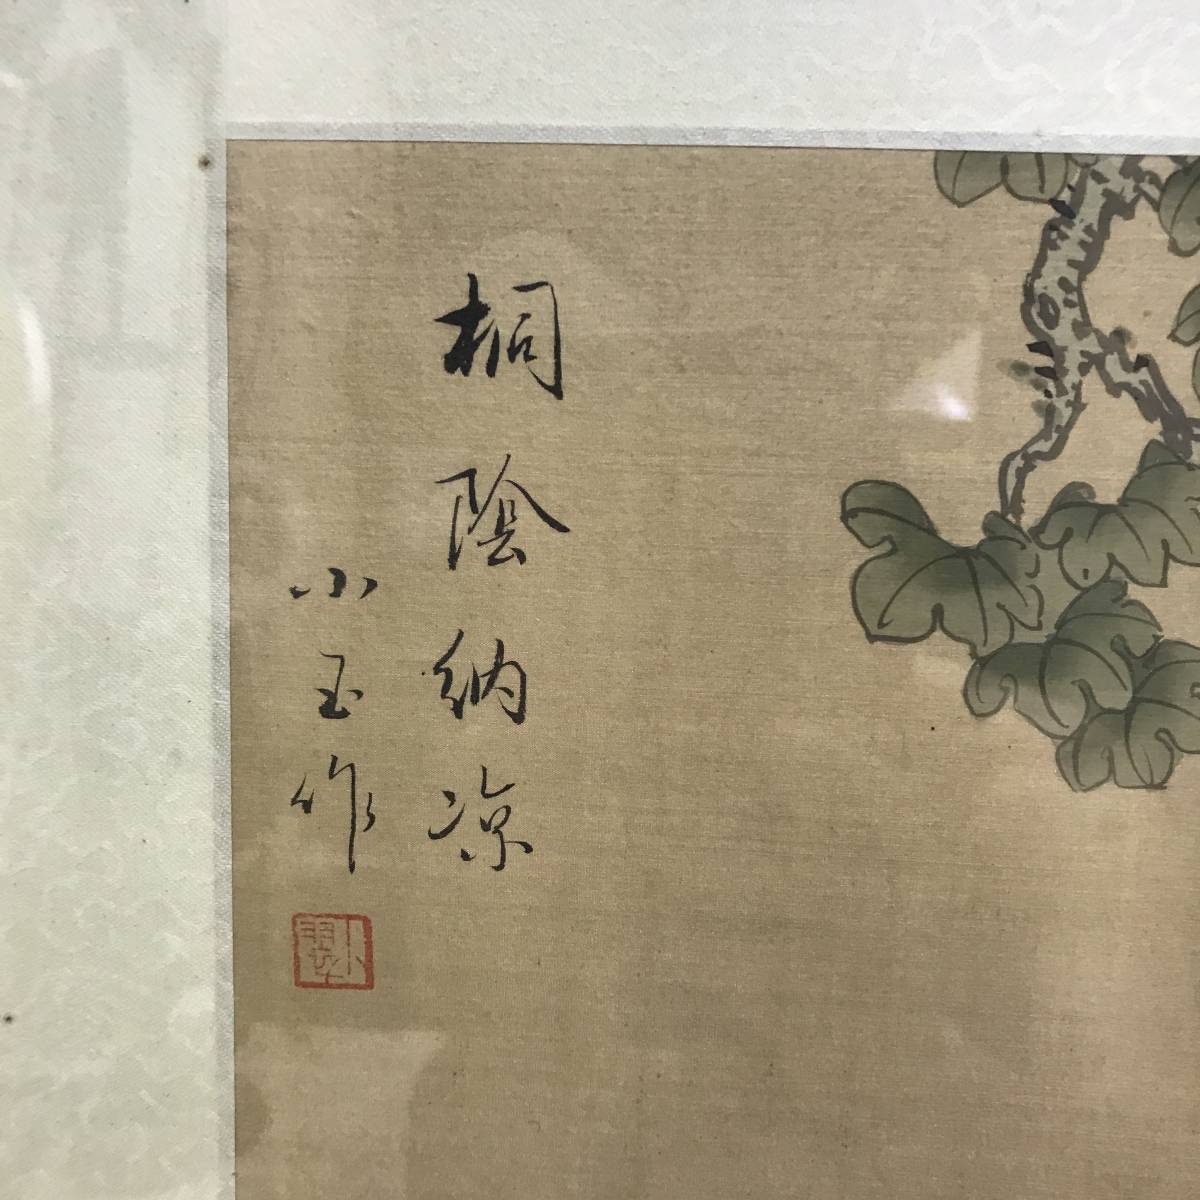 桐陰納凉
小玉作